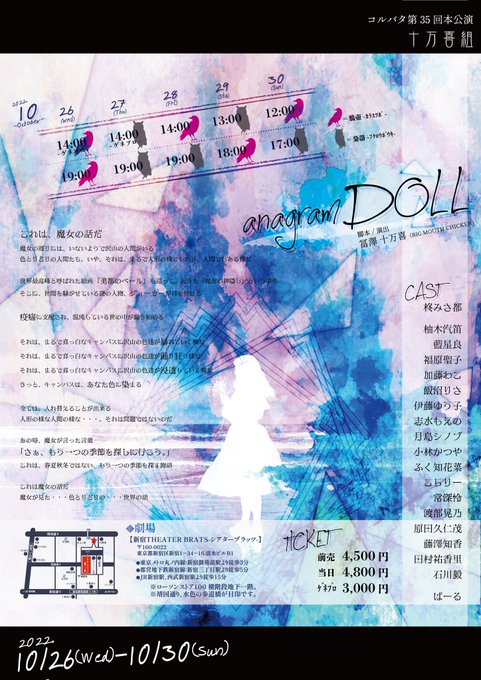 コルバタ第35回本公演
十万喜組
2022
10
October
26
(Wed)
27
(Thu)
28
(Fri)
29
(Sat)
30
(Sun)
14:00
-ゲネプロ
14:00
-ゲネプロ
14:00
13:00
12:00
19:00
19:00
19:00
18:00
17:00
anagram DOLL
脚本/演出
冨澤十万喜(BIG MOUTH CHICKEN)
これは、魔女の話だ
魔女の周りには、いないようで沢山の人間がいる
疫病に支配され、混沌している世の中が動き始める
それは、まるで真っ白なキャンバスに沢山の色達が
それは、まるで真っ白なキャンバスに沢山の色達が
それは、まるで真っ白なキャンバスに沢山の色達が
きっと、キャンバスは、あなた色に染まる
全ては、入れ替えることが出来る
人形の様な人間の様な・・・、それは問題ではないのだ
あの時、魔女が言った言葉
「さぁ、もう一つの季節を探しに行こう。」
これは、春夏秋冬ではない、もう一つの季節を探す物語
これは魔女の話だ
魔女が見た・・・色とりどりの・・・世界の話
CAST
柊みさ都
柚木汽笛
藍星良
福原聖子
加藤わこ
飯沼りさ
伊藤ゆう子
志水もえの
月島シノブ
小林かつや
ふく知花菜
こしりー
常深怜
渡部晃乃
原田久仁茂
藤澤知香
田村祐香里
石川毅
ばーる
◆劇場
【新宿THEATER BRATS-シアターブラッツ-】
〒160-0022
東京都新宿区新宿1-34-16清水ビルB1
●東京メトロ丸ノ内線:新宿御苑前駅より徒歩3分
●都営地下鉄新宿線:新宿三丁目駅より徒歩5分
●JR新宿駅、西武新宿駅より徒歩15分
※ローソンストア100横階段地下一階。
※靖国通り、水色の歩道橋が目印です。
TICKET
前売 4,500円
当日 4,800円
ゲネプロ 3,000円
2022
10/26(Wed)-10/30(Sun)